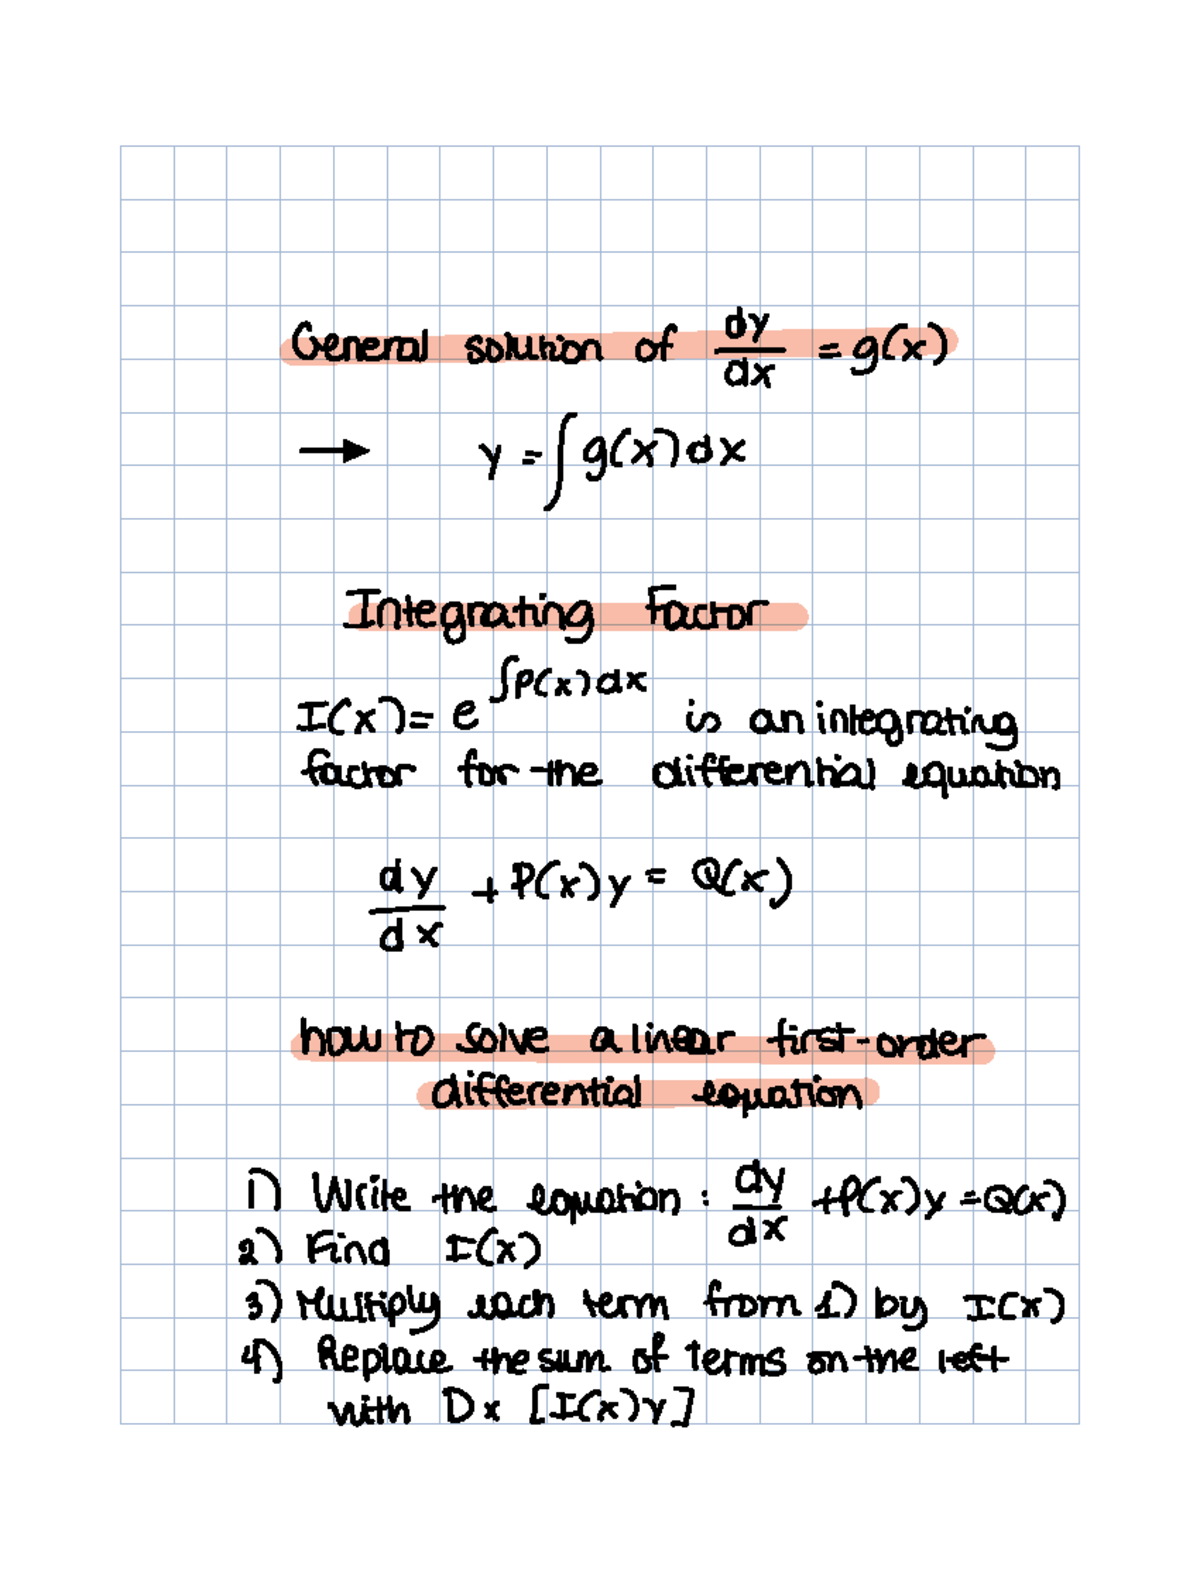 General solution of dy/dx = g(x)
→ y = ∫g(x)dx
Integrating Factor
I(x) = e^∫P(x)dx is an integrating
factor for the differential equation
dy/dx + P(x)y = Q(x)
how to solve a linear first-order
differential equation
1) Write the equation : dy/dx + P(x)y = Q(x)
2) Find I(x)
3) Multiply each term from 1) by I(x)
4) Replace the sum of terms on the left
with Dx [I(x)y]